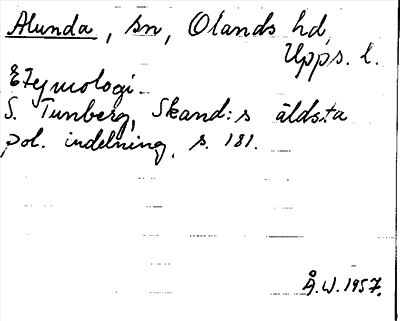 Alunda, sn, Olands hd,
Upps. l.
Etymologi.
S. Tunberg, Skand:s äldsta
pol. indelning, s. 181.
Å.W. 1957.